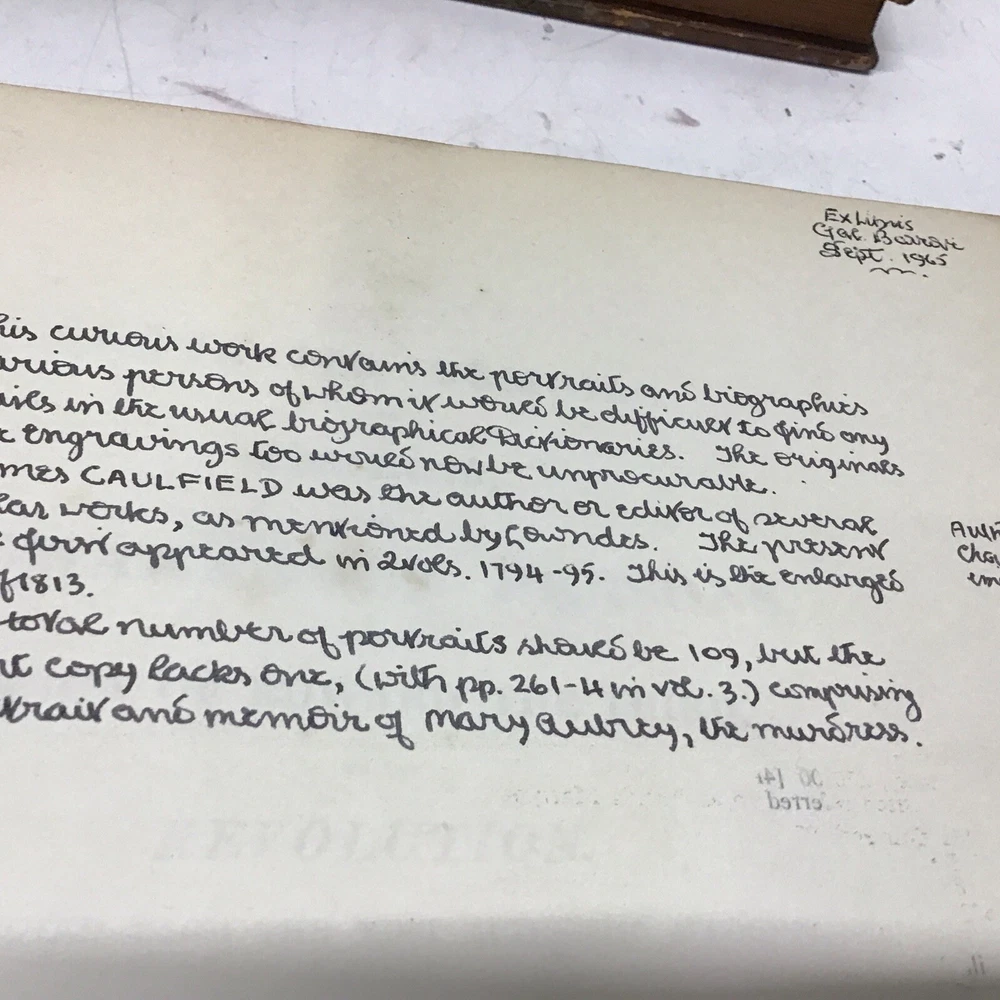 Ex Libris
Sept. 1965
his curious work contains the portraits and biographies
arious persons of whom it would be difficult to find any
ails in the usual biographical Dictionaries. The originals
e engravings too would now be unprocurable.
mes CAULFIELD was the author or editor of several
lar works, as mentioned by Lowndes. The present
e first appeared in 2 vols. 1794-95. This is the enlarged
f 1813.
total number of portraits should be 109, but the
nt copy lacks one, (with pp. 261-4 in vol. 3.) comprising
trait and memoir of Mary Aubrey, the murdress.